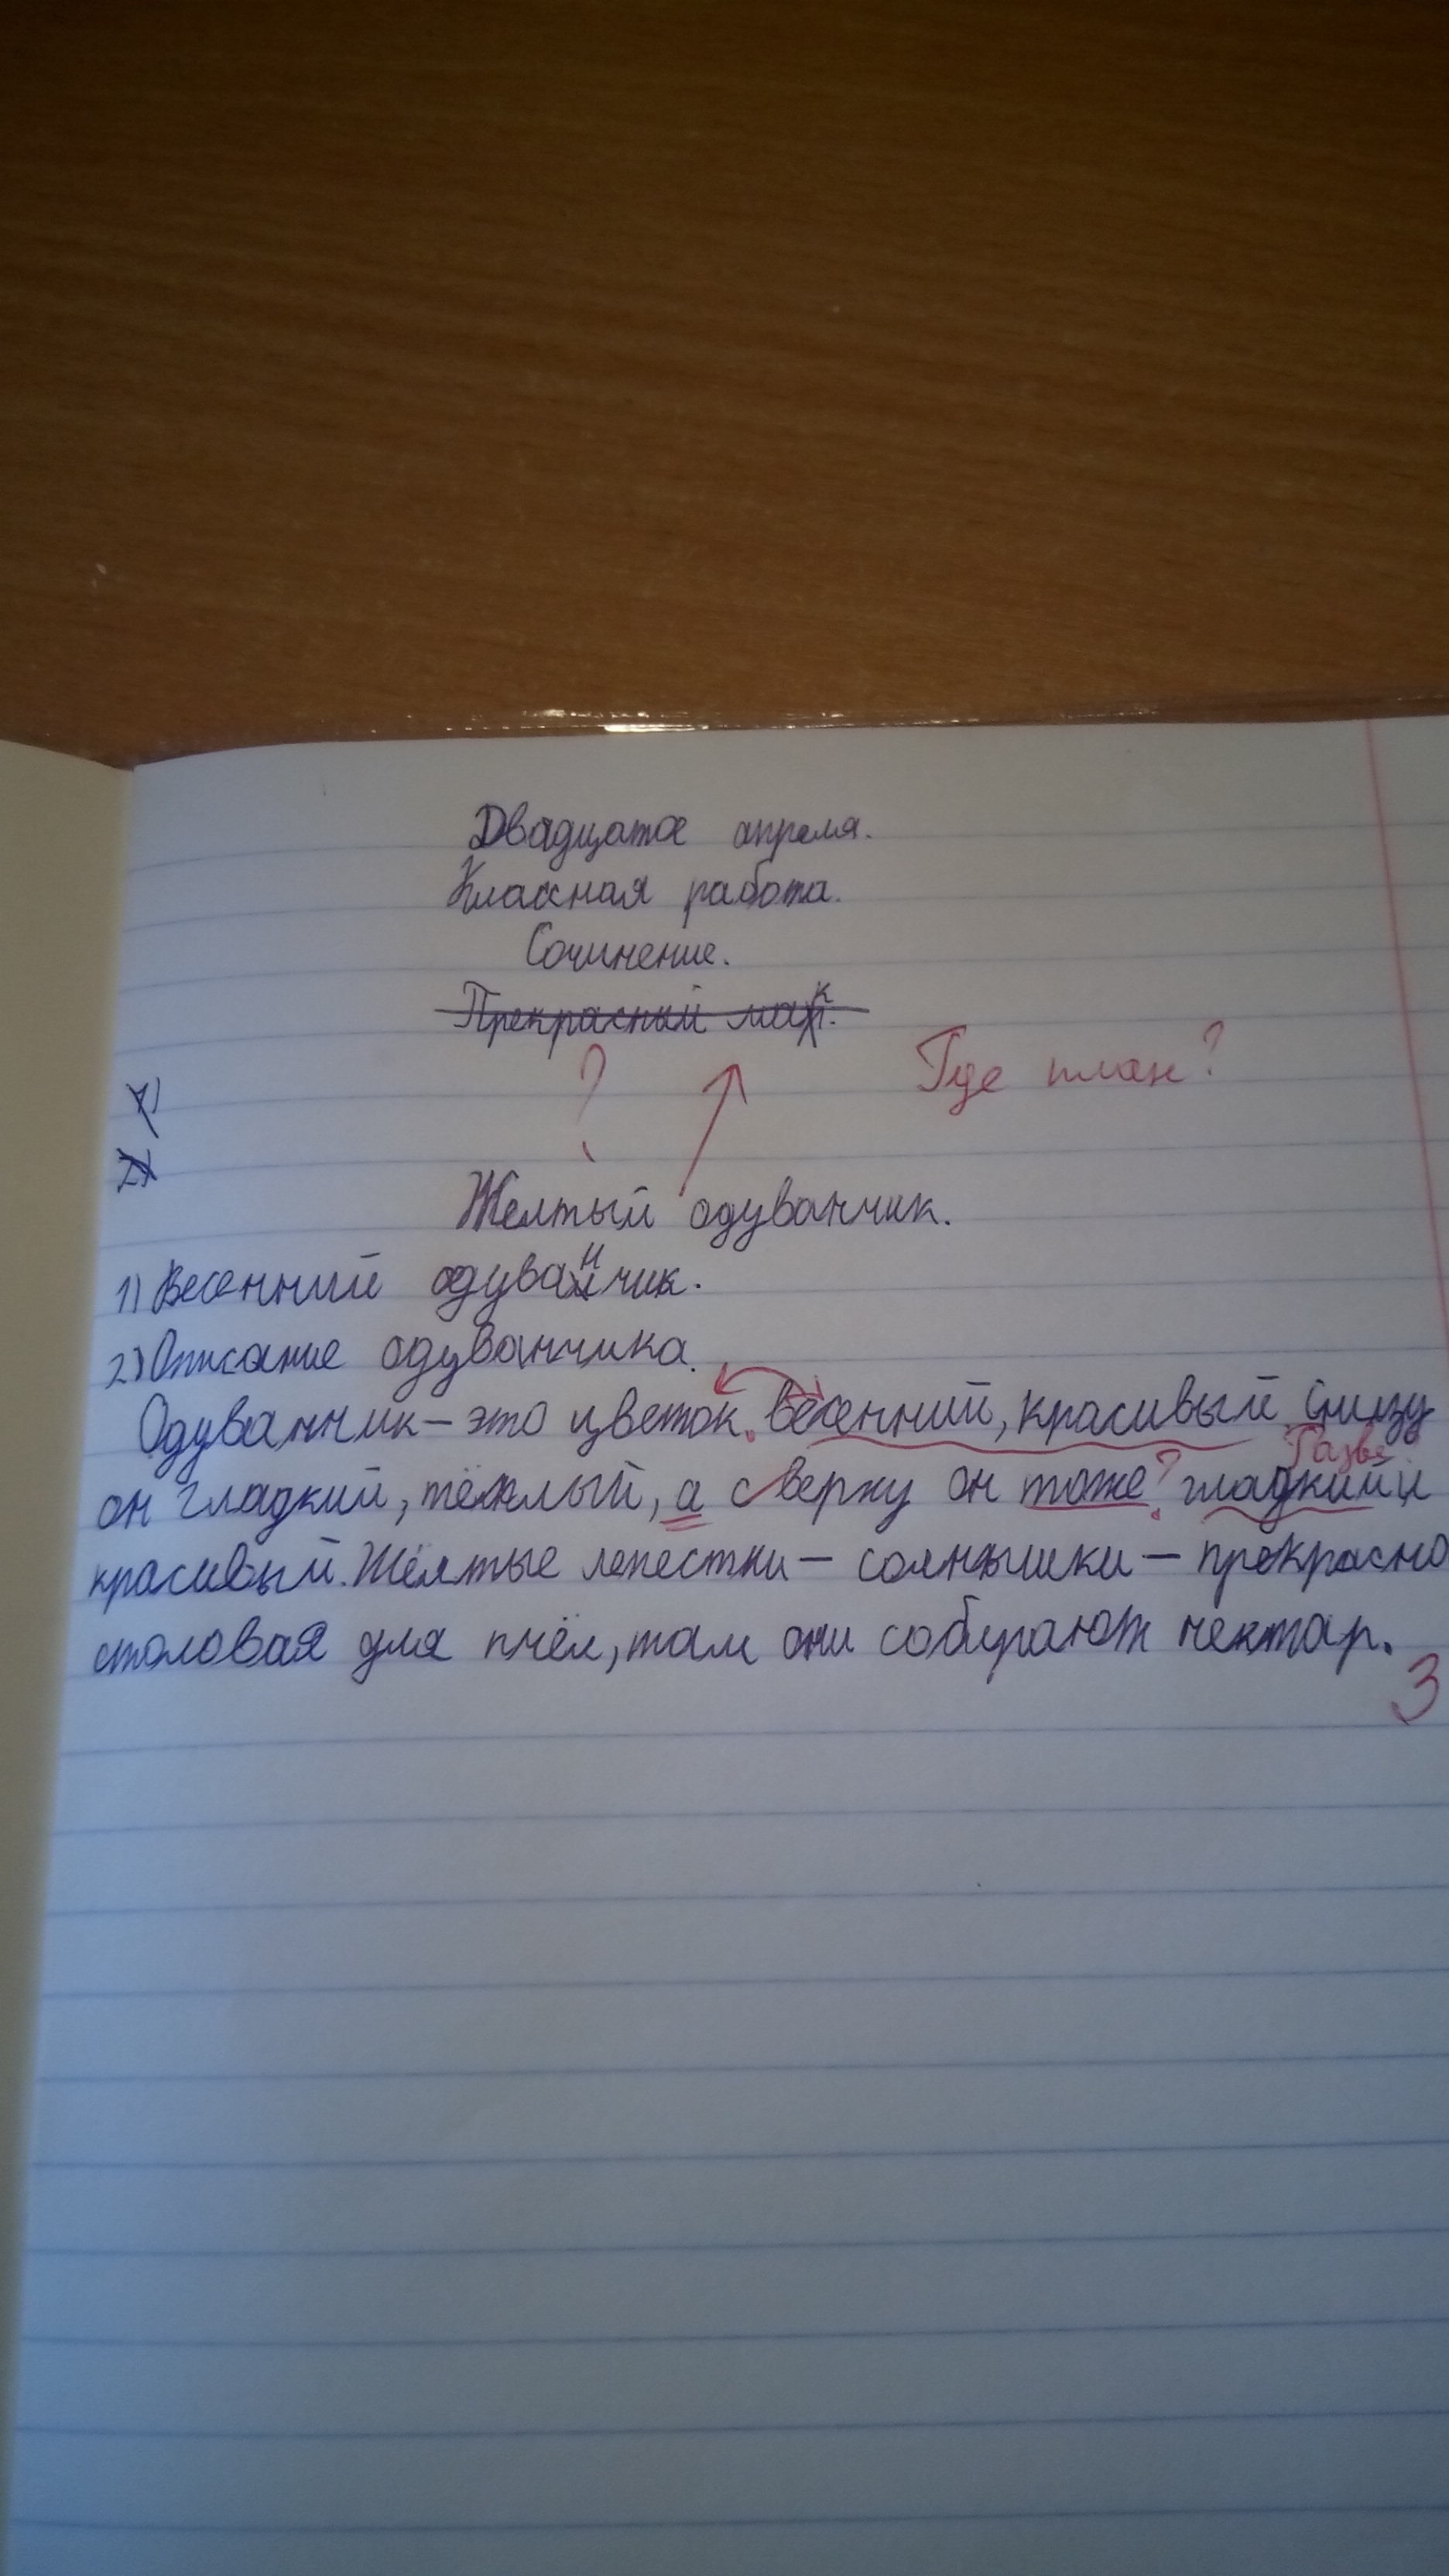 Двадцатое апреля.
Классная работа.
Сочинение.
Прекрасный мак.
Где план?
1)
2)
?
Желтый одуванчик.
1) Весенний одуванчик.
2) Описание одуванчика.
Одуванчик – это цветок весенний, красивый. Снизу
Разве
он гладкий, тёплый, а с верху он тоже ? гладкий и
красивый. Жёлтые лепестки – солнышки – прекрасно
столовая для пчёл, там они собирают нектар.
3